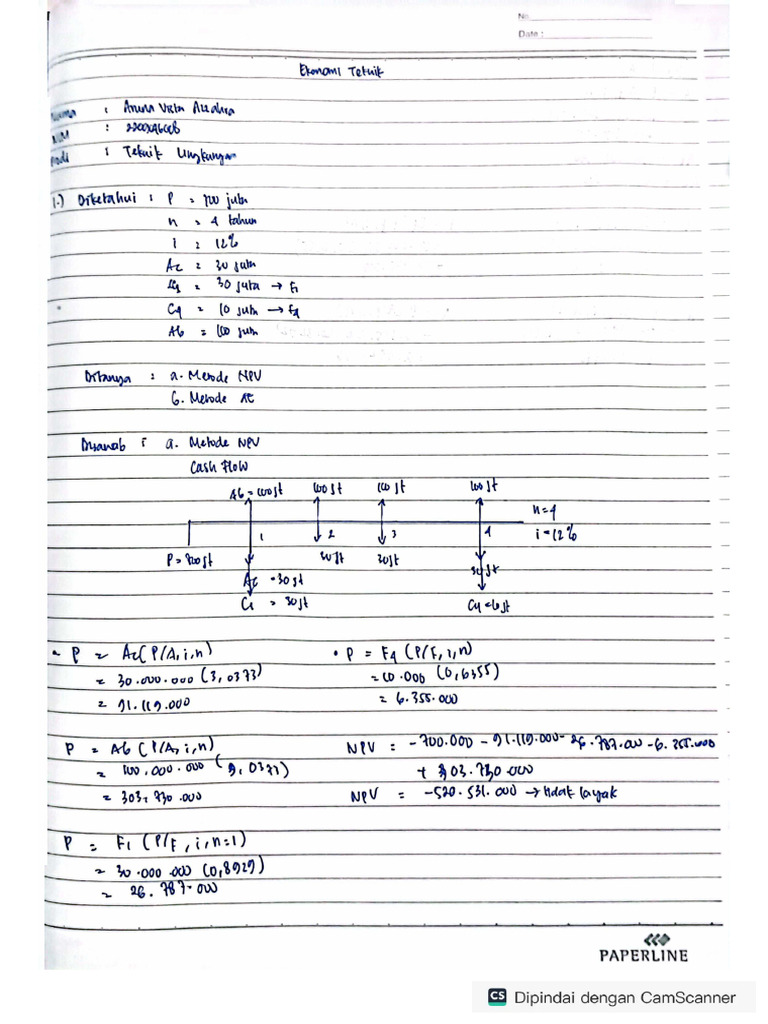 No.
Date :
Ekonomi Teknik
:
:
: Teknik Lingkungan
1.) Diketahui : P = 700 juta
n = 4 tahun
i = 12%
Ac = 30 juta
= 30 juta → F1
C4 = 10 juta → F4
Ab = 100 juta
Ditanya : a. Metode NPV
b. Metode AE
Dijawab : a. Metode NPV
Cash Flow
Ab = 100 jt 100 jt 100 jt 100 jt
n = 4
1 2 3 4 i = 12%
P = 700 jt 30 jt 30 jt 30 jt
Ac = 30 jt
C1 = 30 jt C4 = 10 jt
- P = Ac (P/A, i, n) • P = F4 (P/F, i, n)
= 30.000.000 (3,0373) = 10.000 (0,6355)
= 91.119.000 = 6.355.000
P = Ab (P/A, i, n) NPV = - 700.000 - 91.119.000 - 26.787.000 - 6.355.000
= 100.000.000 (3,0373) + 303.730.000
= 303.730.000 NPV = -520.531.000 → tidak layak
P = F1 (P/F, i, n=1)
= 30.000.000 (0,8929)
= 26.787.000
PAPERLINE
CS Dipindai dengan CamScanner